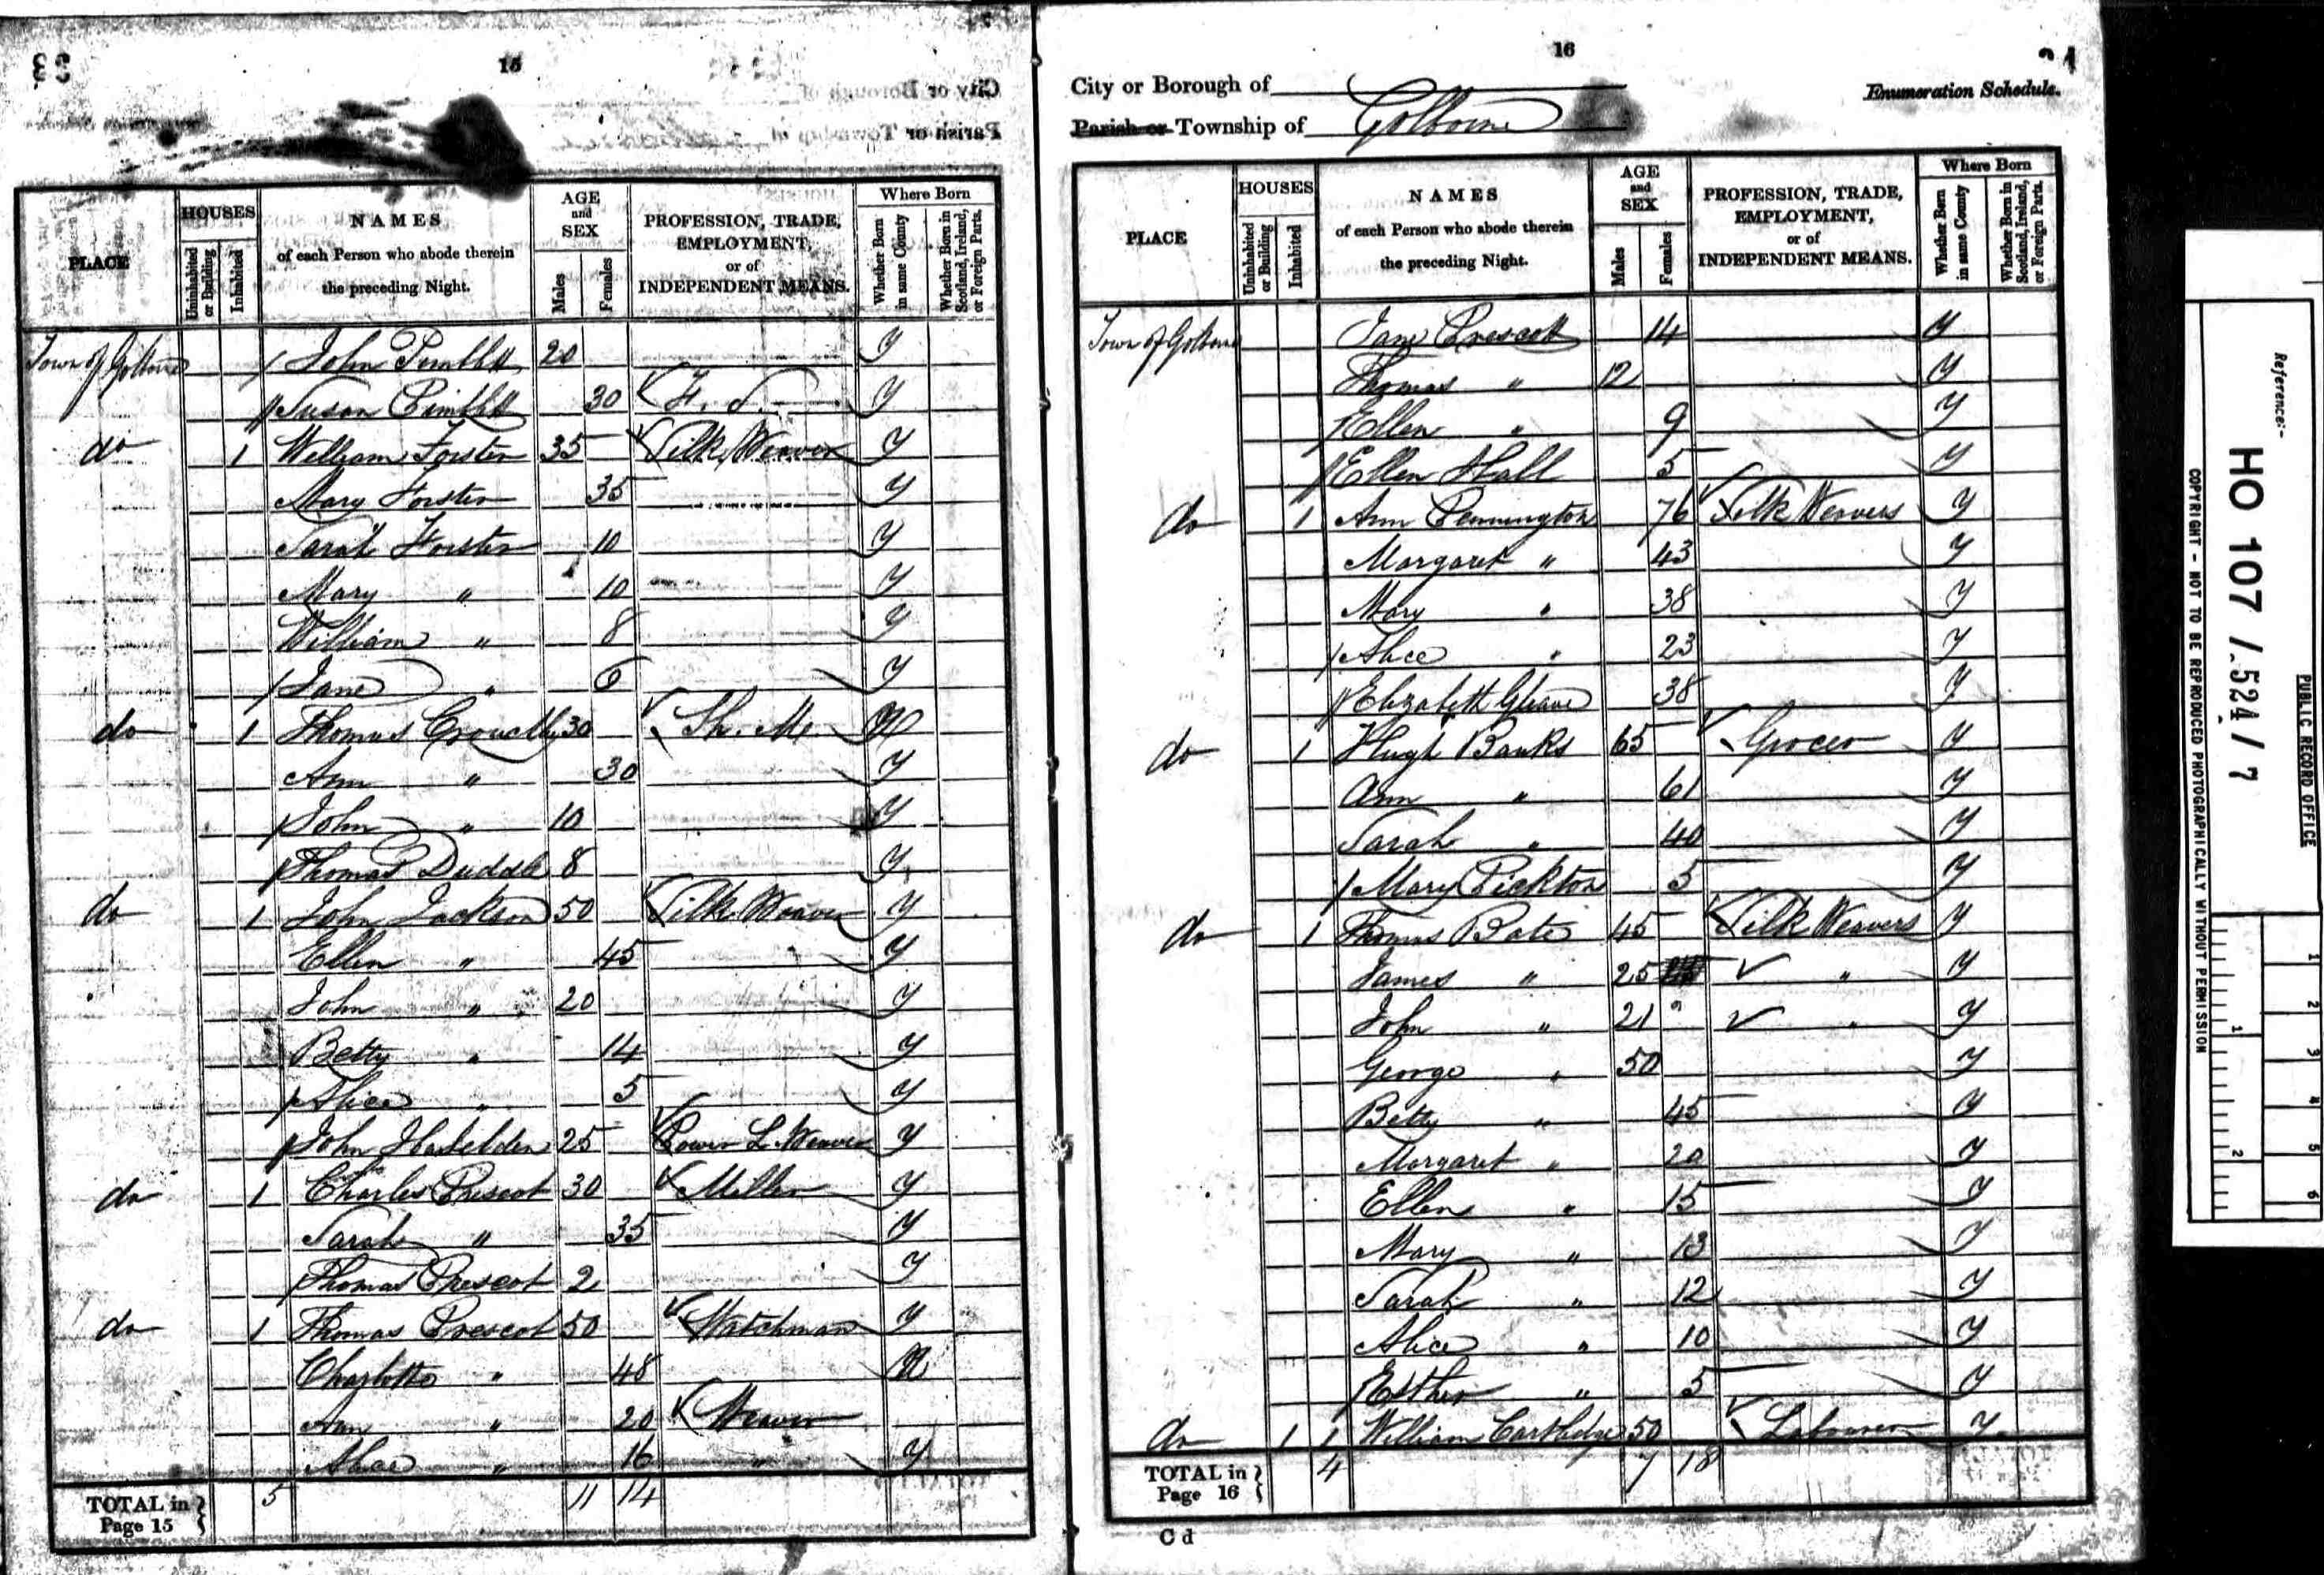 15
PLACE
HOUSES
Uninhabited or Building
Inhabited
NAMES
of each Person who abode therein
the preceding Night.
AGE
and
SEX
Males
Females
PROFESSION, TRADE,
EMPLOYMENT,
or of
INDEPENDENT MEANS.
Where Born
Whether Born in same County
Whether Born in Scotland, Ireland, or Foreign Parts.
Town of Golborne John Pimblett 20 y
Susan Pimblett 30 F. S. y
do 1 William Forster 35 Silk Weaver y
Mary Forster 35 y
Sarah Forster 10 y
Mary " 10 y
William " 8 y
Jane " 6 y
do 1 Thomas 30 Sh. M.
Ann " 30 y
John " 10 y
Thomas Duddle 8 y
do 1 John Jackson 50 Silk Weaver y
Ellen " 45 y
John " 20 y
Betty " 14 y
Alice " 5 y
John Haselden 25 Power L. Weaver y
do 1 Charles Prescot 30 Miller y
Sarah " 35 y
Thomas Prescot 2 y
do 1 Thomas Prescot 50 Watchman y
Charlotte " 48 N
Ann " 20 Weaver
Alice " 16 " y
TOTAL in Page 15 5 11 14
16
City or Borough of
Parish or Township of Golborne
Enumeration Schedule.
PLACE
HOUSES
Uninhabited or Building
Inhabited
NAMES
of each Person who abode therein
the preceding Night.
AGE
and
SEX
Males
Females
PROFESSION, TRADE,
EMPLOYMENT,
or of
INDEPENDENT MEANS.
Where Born
Whether Born in same County
Whether Born in Scotland, Ireland, or Foreign Parts.
Town of Golborne Jane Prescott 14 y
Thomas " 12 y
Ellen " 9 y
Ellen Hall 5 y
do 1 Ann Pennington 76 Silk Weavers y
Margaret " 43 y
Mary " 38 y
Alice " 23 y
Elizabeth Gleave 38 y
do 1 Hugh Banks 65 Grocer y
Ann " 61 y
Sarah " 40 y
Mary Pickton 5 y
do 1 Thomas Bate 45 Silk Weavers y
James " 25 " y
John " 21 " y
George " 50 y
Betty " 45 y
Margaret " 20 y
Ellen " 15 y
Mary " 13 y
Sarah " 12 y
Alice " 10 y
Esther " 5 y
do 1 1 William Cartledge 50 Labourer y
TOTAL in Page 16 4 7 18
C d
Reference:-
HO 107 / 524 / 7
PUBLIC RECORD OFFICE
COPYRIGHT - NOT TO BE REPRODUCED PHOTOGRAPHICALLY WITHOUT PERMISSION
1 2 3 4 5 6
1 2